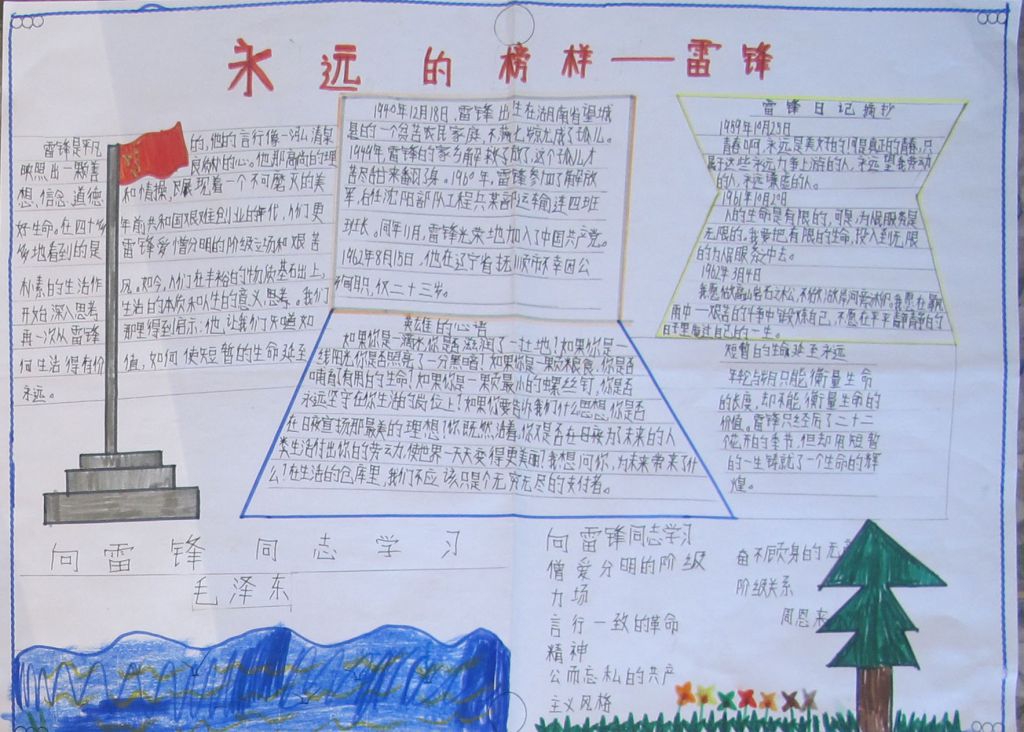 永远的榜样——雷锋
雷锋是平凡的,他的言行像一泓清泉
映照出一颗善良纯朴的心。他那高尚的理
想、信念、道德和情操,展现着一个不可磨灭的美
好生命。在四十多年前共和国艰难创业的年代,人们更
多地看到的是雷锋爱憎分明的阶级立场和艰苦
朴素的生活作风。如今,人们在丰裕的物质基础上,
开始深入思考生活的本质和人生的意义思考。我们
再一次从雷锋那里得到启示。他,让我们知道如
何生活得有价值,如何使短暂的生命延至
永远。
1940年12月18日,雷锋出生在湖南省望城
县的一个贫苦农民家庭,不满七岁就成了孤儿。
1949年,雷锋的家乡解放了,这个孤儿才
苦尽甘来翻了身。1960年,雷锋参加了解放
军,在沈阳部队工程兵某部运输连四班
班长。同年11月,雷锋光荣地加入了中国共产党。
1962年8月15日,他在辽宁省抚顺市不幸因公
殉职,仅二十三岁。
雷锋日记摘抄
1959年10月25日
青春啊,永远是美好的,可是真正的青春,只
属于这些永远力争上游的人,永远忘我劳动
的人,永远谦虚的人。
1961年10月20日
人的生命是有限的,可是,为人民服务是
无限的。我要把有限的生命,投入到无限
的为人民服务中去。
1962年3月4日
我愿做高山岩石之松,不做湖岸河旁之柳。我愿在暴风
雨中——艰苦的斗争中锻炼自己,不愿在平平静静的
日子里度过自己的一生。
英雄的心语
如果你是一滴水,你是否滋润了一寸土地!如果你是一
线阳光,你是否照亮了一分黑暗!如果你是一颗粮食,你是否
哺育了有用的生命!如果你是一颗最小的螺丝钉,你是否
永远坚守在你生活的岗位上!如果你要告诉我们什么思想,你是否
在日夜宣扬那最美的理想!你既然活着,你又是否在日夜为了未来的人
类生活付出你的劳动,使世界一天天变得更美丽!我想问你,为未来带来了什
么!在生活的仓库里,我们不应该只是个无穷无尽的支付者。
短暂的生命延至永远
年轮岁月只能衡量生命
的长度,却不能衡量生命的
价值。雷锋只经历了二十二
个花开的季节,但却用短暂
的一生铸就了一个生命的辉
煌。
向雷锋同志学习
毛泽东
向雷锋同志学习
憎爱分明的阶级
力场
言行一致的革命
精神
公而忘私的共产
主义风格
奋不顾身的无
阶级关系
周恩来